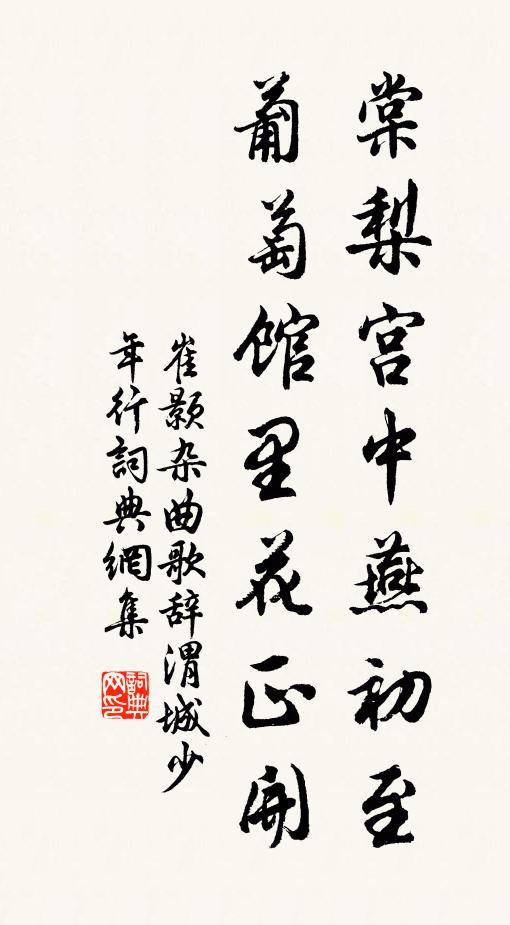 棠梨宫中燕初至
葡萄馆里花正開
崔颢杂曲歌辞渭城少
年行詞典網集
詞典網印